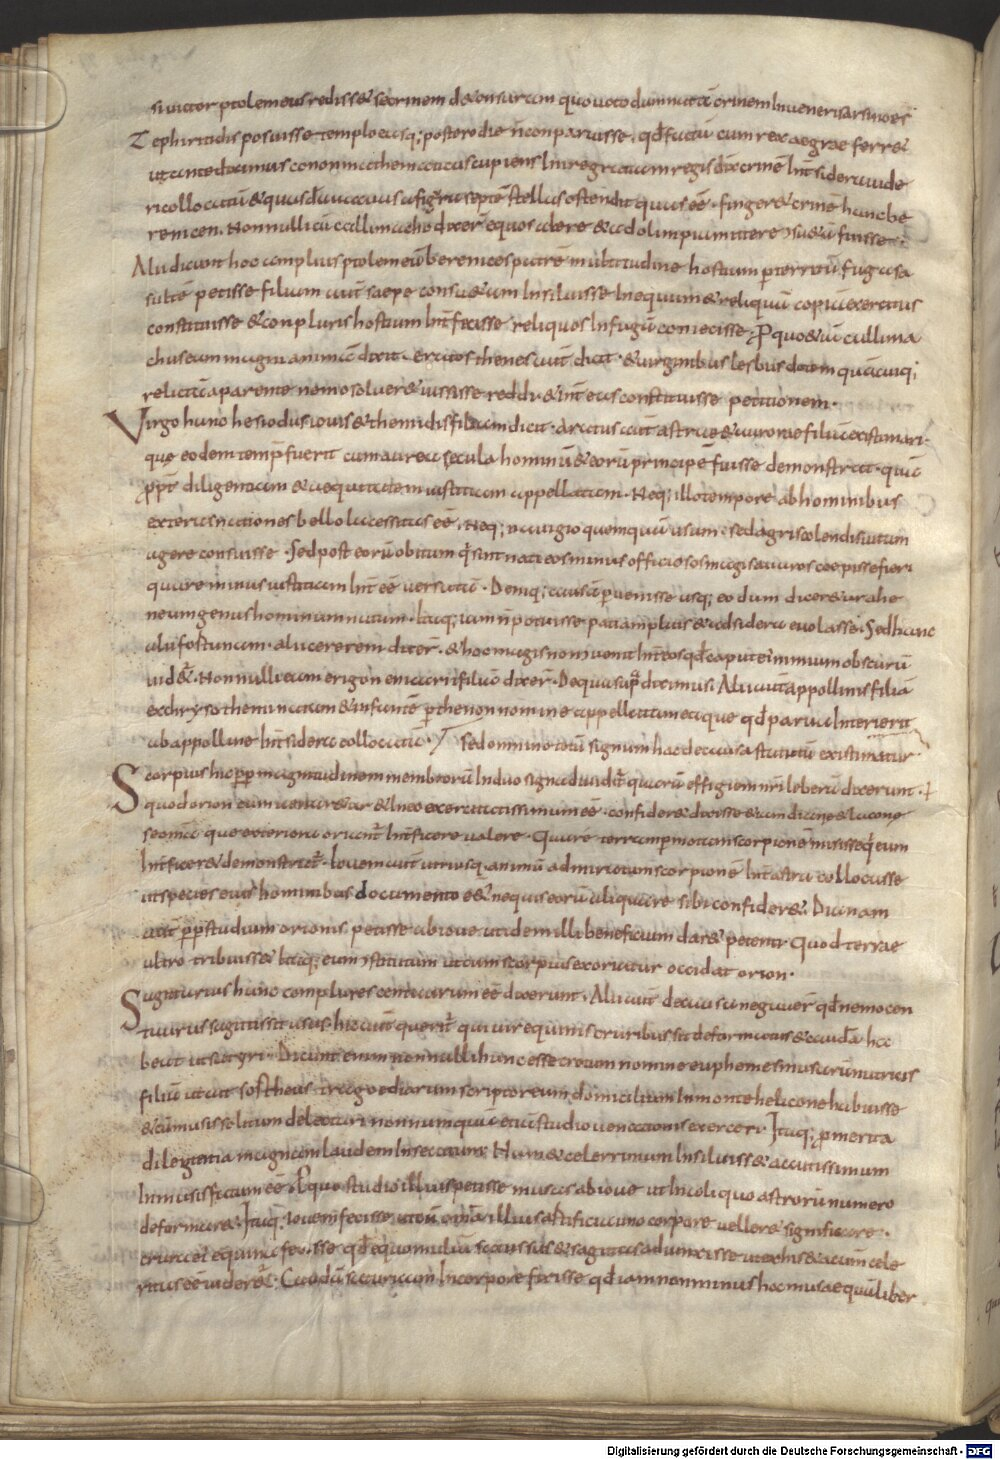 si victor ptolemeus redisset se crinem detonsuram quo voto dumnatã crinem In veneris arsinoes
Zephiritidis posuisse templo eusq; postero die ñ conparuisse. qđ factũ cum rex aegrae ferret
ut ante diximus conon mathematicus cupiens Inire gratiam regis dixit crinẽ Int̃ sidera vide
ri collocatũ & quasdã vacuas a figura septẽ stellas ostendit quas eẽ fingeret crinẽ hanc be
renicen. Nonnulli cũ callimacho dixer̃ equos alere & ad olimpia mittere suetã fuisse.
Alii dicunt hoc amplius ptolemeũ berenices patrẽ multitudine hostium perterritũ fuga sa
lutẽ petisse filiam aut̃ saepe consuetam Insiluisse In equum & reliquã copiã exercitus
constituisse & conpluris hostium Int̃fecisse reliquos In fugã coniecisse. Pro quo etiã callima
chus eam magnanimã dixit. eratosthenes aut̃ dicit & virginibus lesbiis dotem quã cuiq;
relictã a parente nemo solveret iussisse reddi & Int̃ eas constituisse petitionem.
Virgo hanc hesiodus iovis & themidis filiam dicit. Aratus aut̃ astraei & aurorae filiã existimari.
que eodem temp̃ fuerit cum aurea secula hominũ & eorũ principẽ fuisse demonstrat. quã
ppt̃ diligentiam & aequitatem iustitiam appellatam. Neq; illo tempore ab hominibus
exteras nationes bello lacessitas eẽ. Neq; navigio quemquã usum. sed agris colendis vitam
agere consuisse. Sed post eorũ obitum qui sint nati eos minus officiosos magis avaros coepisse fieri
quare minus iustitiam Int̃ eẽ versatã. Deniq; causã pervenisse usq; eo dum diceret urahe
neum genus hominum natum. Itaq; iam ñ potuisse pati amplius & ad sidera evolasse. Sed hanc
alii fortunam. alii cererem dixer̃. & hoc magis non convenit Int̃ eos qđ caput ei nimium obscurũ
videt̃. Nonnulli eam erigonen icarii filiã dixer̃. De qua supra diximus. Alii aut̃ appollinis filiã
ex chrysothemi natam & infantẽ parthenon nomine appellatam eaque qđ parva Interierit
ab appolline Int̃ sidera collocatã. sed omnino totũ signum hac de causa statutũ existimatur.
Scorpius hic ppt̃ magnitudinem membrorũ In duo signa dividit̃ quarũ effigiem nr̃i leberã dixerunt.
quod orion cum venaret̃ & In eo exercitatissimum eẽ confideret dixisse etiam diane & latone
se omnia que ex terra oriant̃ Int̃ficere valere. Quare terram permotam scorpionẽ misisse qui eum
Int̃ficere demonstratr̃. Iovem aut̃ utriusq. animũ admiratum scorpionẽ Int̃ astra collocasse
ut species eius hominibus documento eẽt nequis eorũ aliqua re sibi confideret. Dianam
aut̃ pp̃ studium orionis petisse ab iove ut idem illi beneficium daret petenti quod terrae
ultro tribuisset. Itaq; eum ɔstitutum ut cum scorpius exoriatur occidat orion.
Sagittarius hunc complures centaurum eẽ dixerunt. Alii aut̃ de causa negaver̃ qđ nemo cen
taurus sagittis sit usus. hic aut̃ querit̃ qui vir equinis cruribus sit deformatus & caudã ha
beat ut satyri. Dicunt enim nonnulli hunc esse crotum nomine euphemes musarũ nutricis
filiũ ut ait sostheus tragoediarum scriptor eum domicilium In monte helicone habuisse
& cũ musis solitum delectari nonnumquã etiã studio venationis exerceri. Itaq; pro merita
diligentia magnam laudem Insecutum. Nam & celerrimum In silvis & accutissimum
In musis factum eẽ. Pro quo studio illius petisse musas ab iove ut In aliquo astrorũ numero
deformaret. Itaq; Iovem fecisse & cũ omia illius artificia uno corpore vellet significare.
crura ei equina fecisse qđ equo multũ sit usus & sagittas adiunxisse ut ex his & acumen & cele
ritas eẽ videret̃. Caudã satyricam In corpore fixisse qđ iam non minus hoc musae quã liber
Digitalisierung gefördert durch die Deutsche Forschungsgemeinschaft - DFG